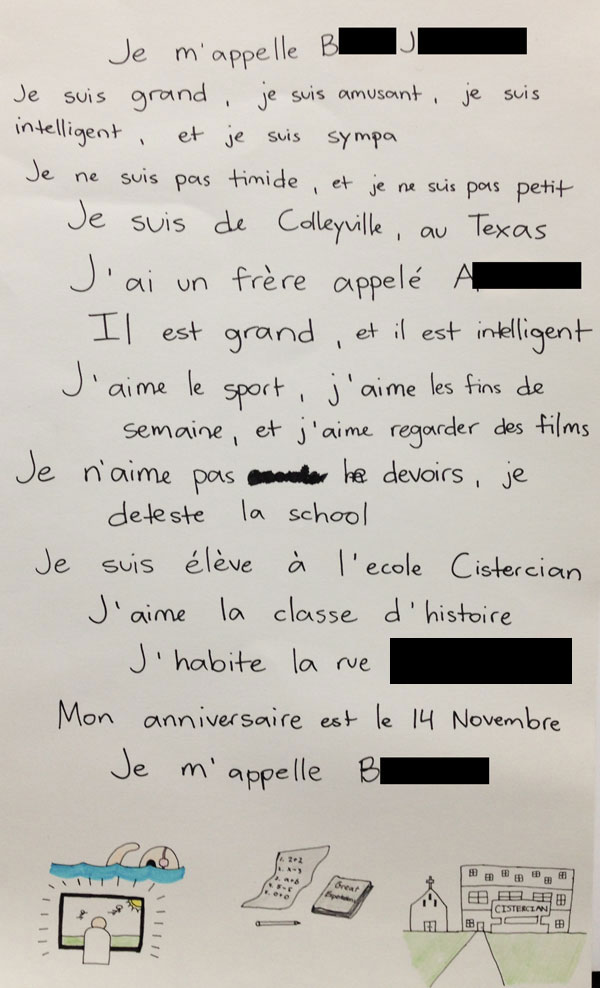 Je m'appelle B J
Je suis grand, je suis amusant, je suis
intelligent, et je suis sympa
Je ne suis pas timide, et je ne suis pas petit
Je suis de Colleyville, au Texas
J'ai un frère appelé A
Il est grand, et il est intelligent
J'aime le sport, j'aime les fins de
semaine, et j'aime regarder des films
Je n'aime pas devoirs, je
deteste la school
Je suis élève à l'ecole Cistercian
J'aime la classe d'histoire
J'habite la rue
Mon anniversaire est le 14 Novembre
Je m'appelle B
1. 2+2
Great
CISTERCIAN